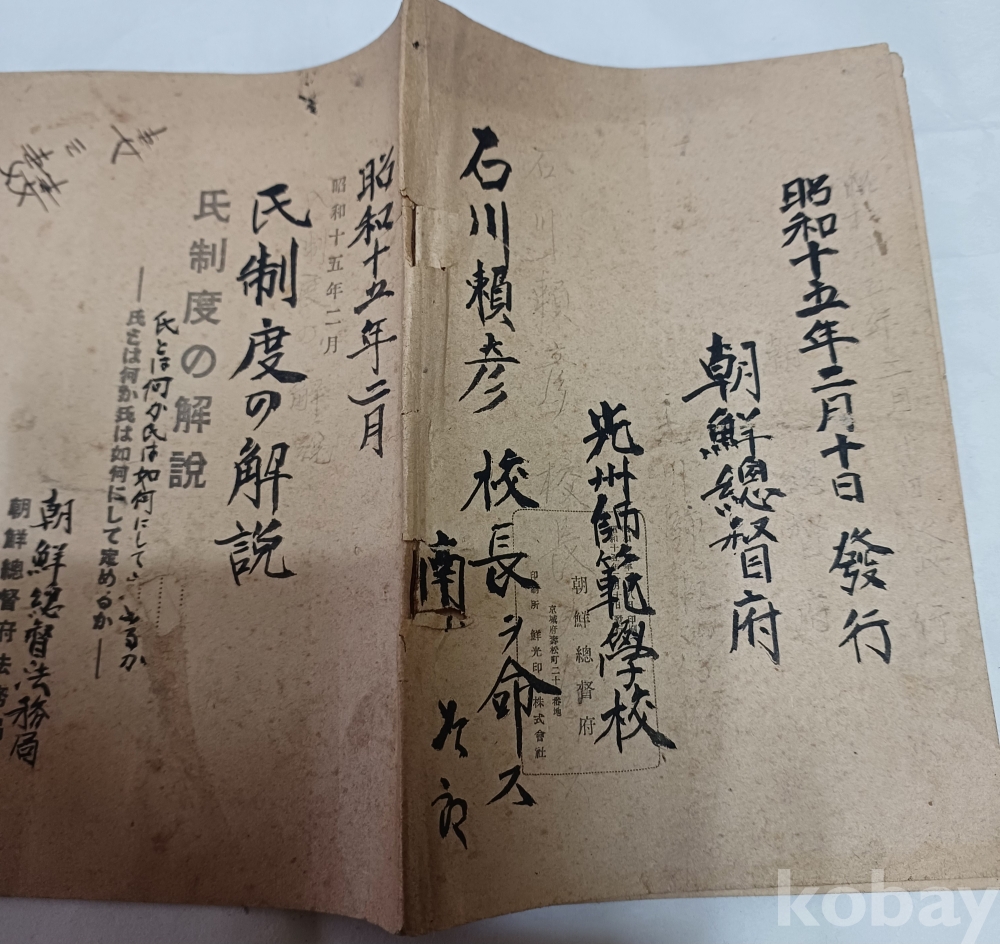 昭和十五年二月十日 發行
朝鮮總督府
光州師範學校
朝鮮總督府
京城府壽松町二十七番地
印刷所 鮮光印刷株式會社
石川賴彦 校長ヲ命ス
南 次郎
昭和十五年二月
昭和十五年二月
民制度の解説
氏制度の解説
氏とは何か氏は如何にして
―氏とは何か氏は如何にして定めるか―
朝鮮總督法務局
朝鮮總督府法務局
kobay